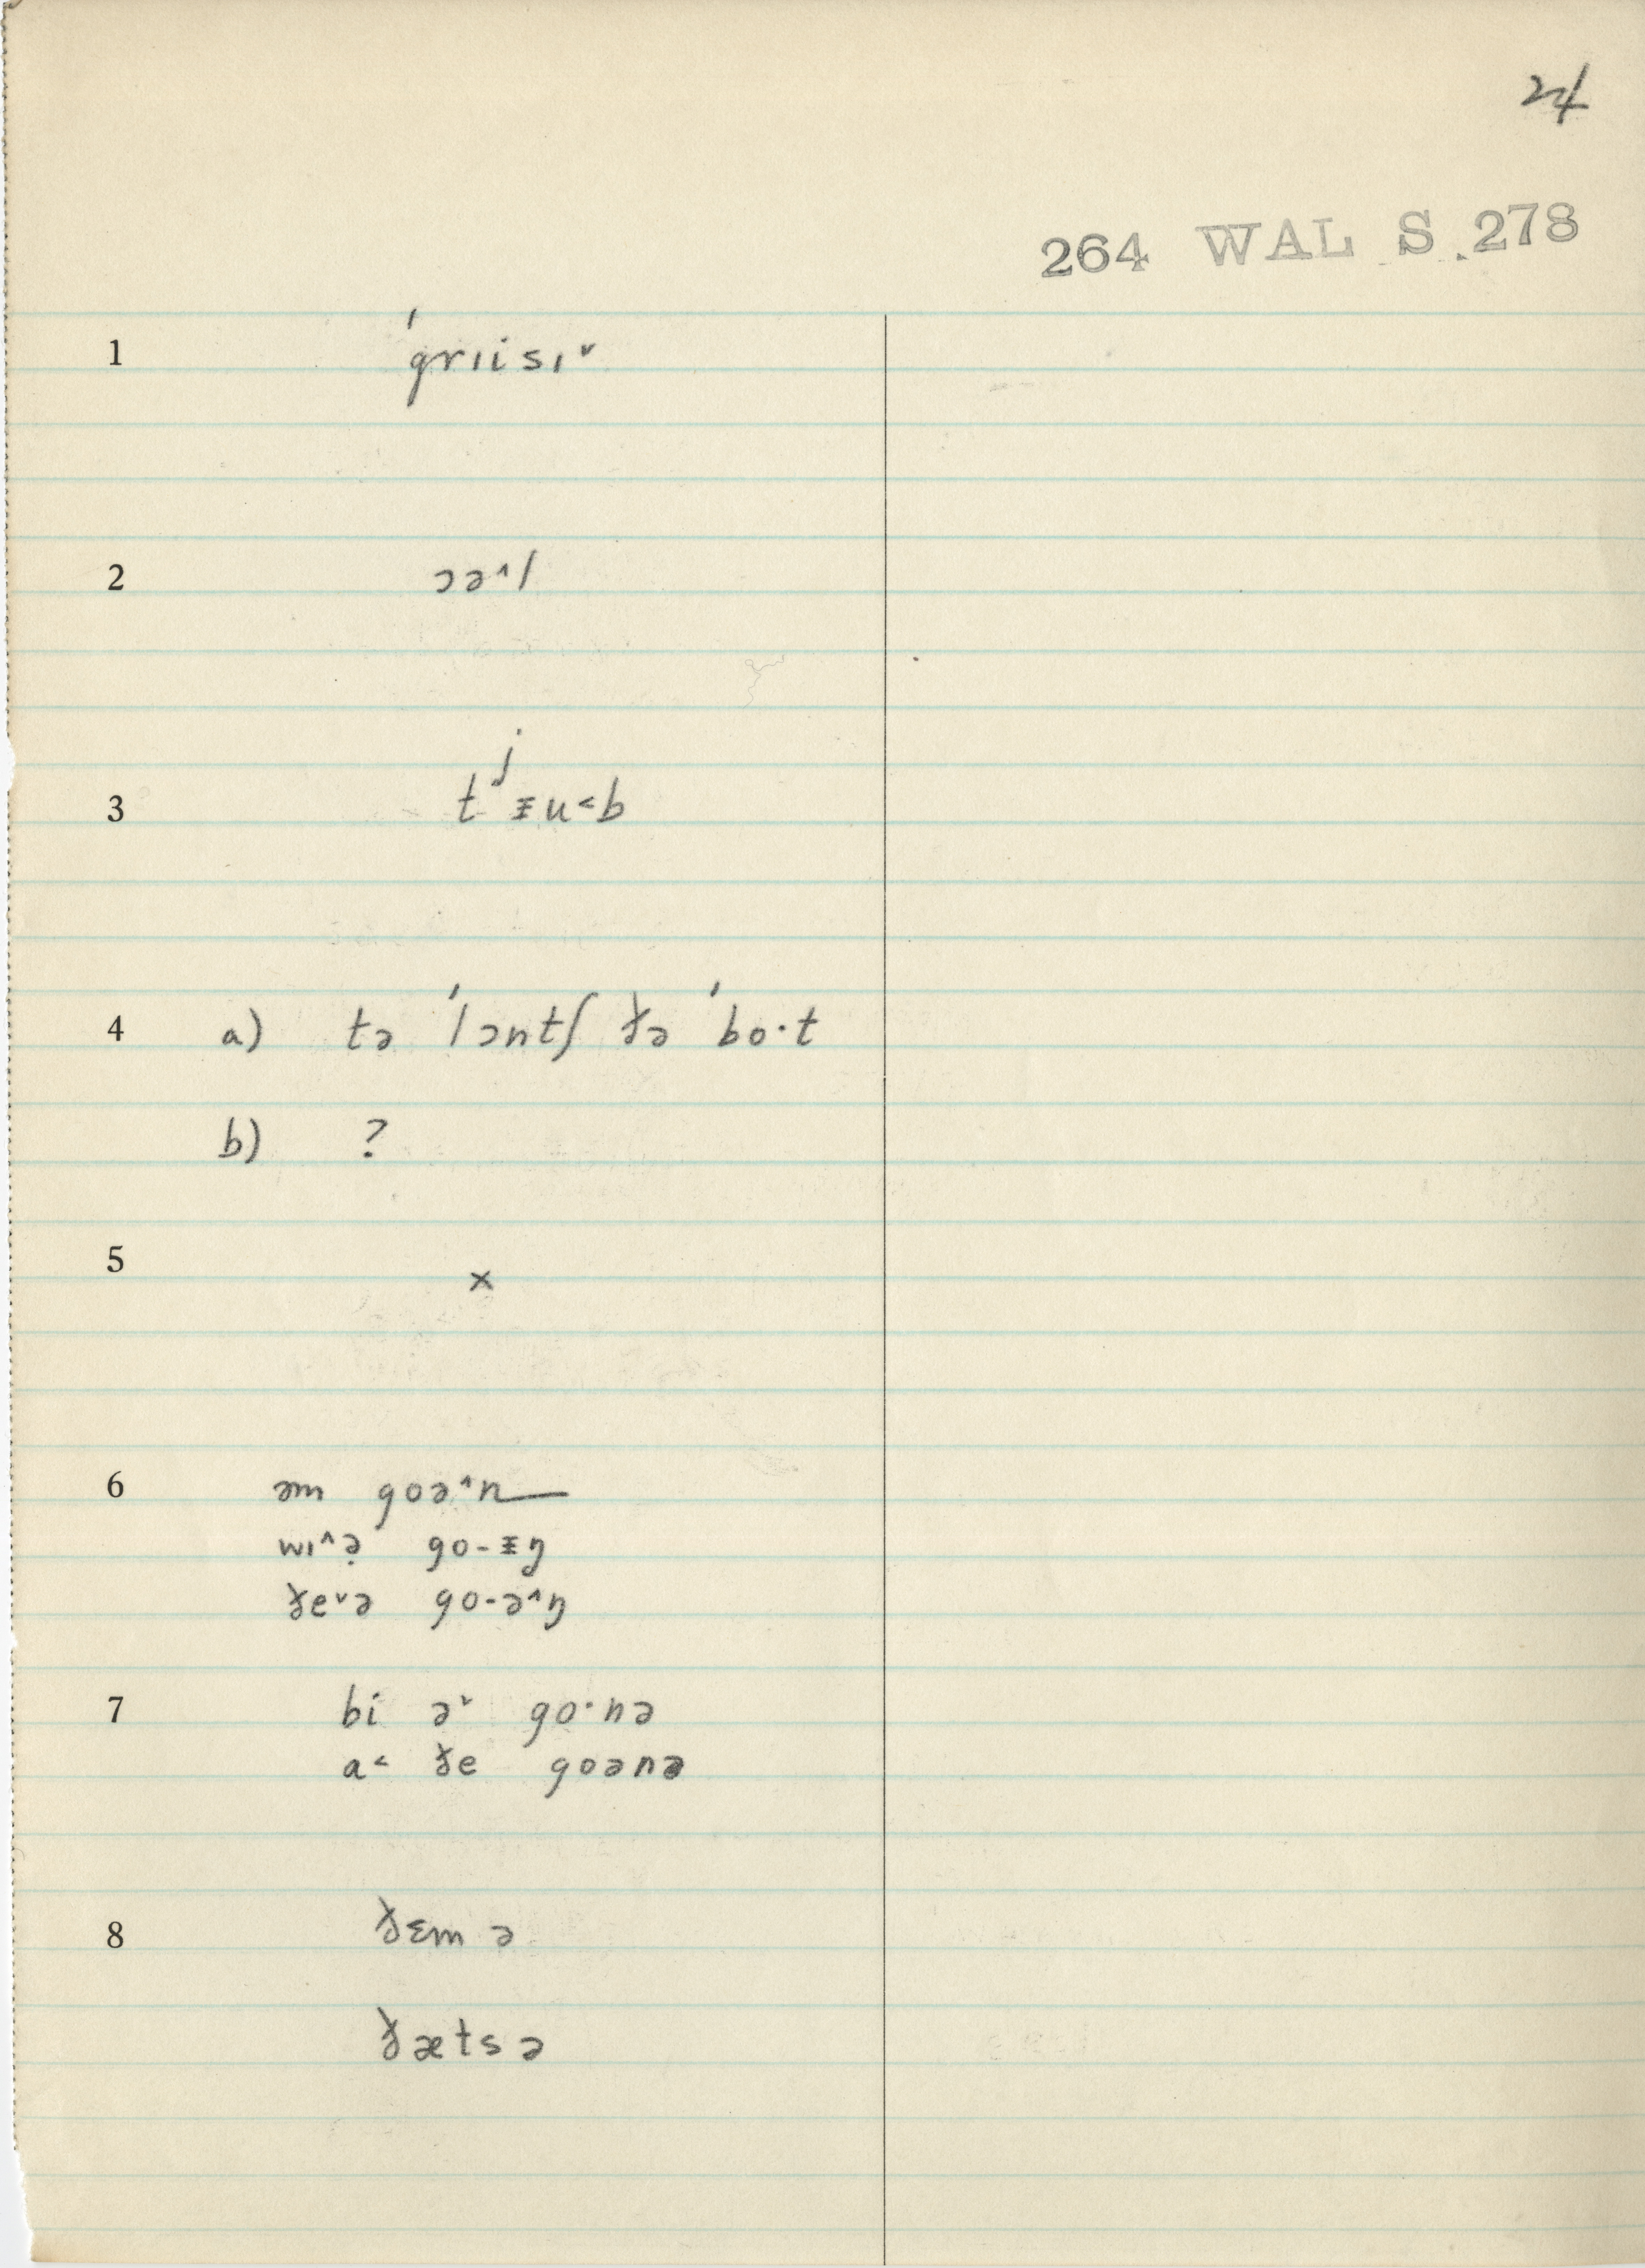 24
264 WAL S 278
1 ˈgrɪisɪ˅
2 ɔə^l
3 tʲᵻu<b
4 a) tə ˈlɔntʃ ðə ˈbo·t
b) ?
5 x
6 əm goə^n—
wɪ^ə̣ go-ᵻŋ
ðe˅ə go-ə^ŋ
7 bi ə˅ go·nə
a< ðe goənə
8 ðɛm ə
ðætsə